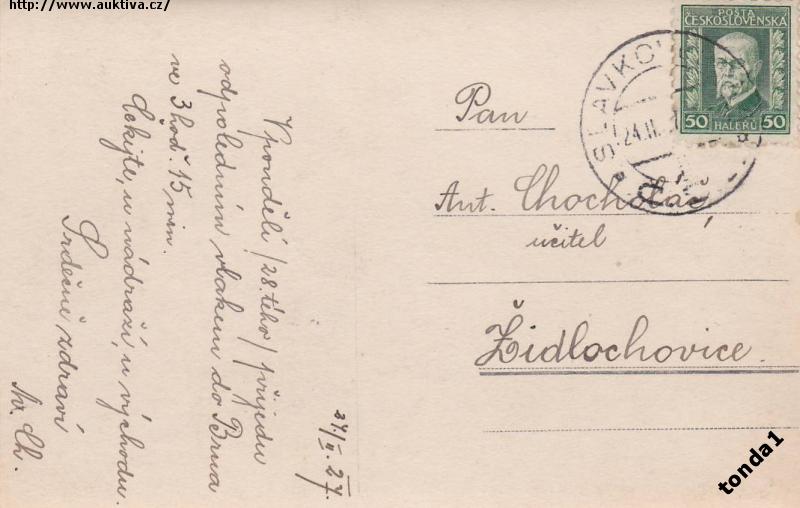 http://www.auktiva.cz/
POŠTA
ČESKOSLOVENSKÁ
50 HALÉŘŮ 50
SLAVKOV
24.II.
Pan
Ant. Chocholáč,
učitel
Židlochovice.
24/II. 27.
V pondělí /28. t.ého/ přijedu
odpoledním vlakem do Brna
ve 3 hod. 15 min.
Čekejte, u nádraží, u východu.
Srdečně zdraví
Ch.
tonda1